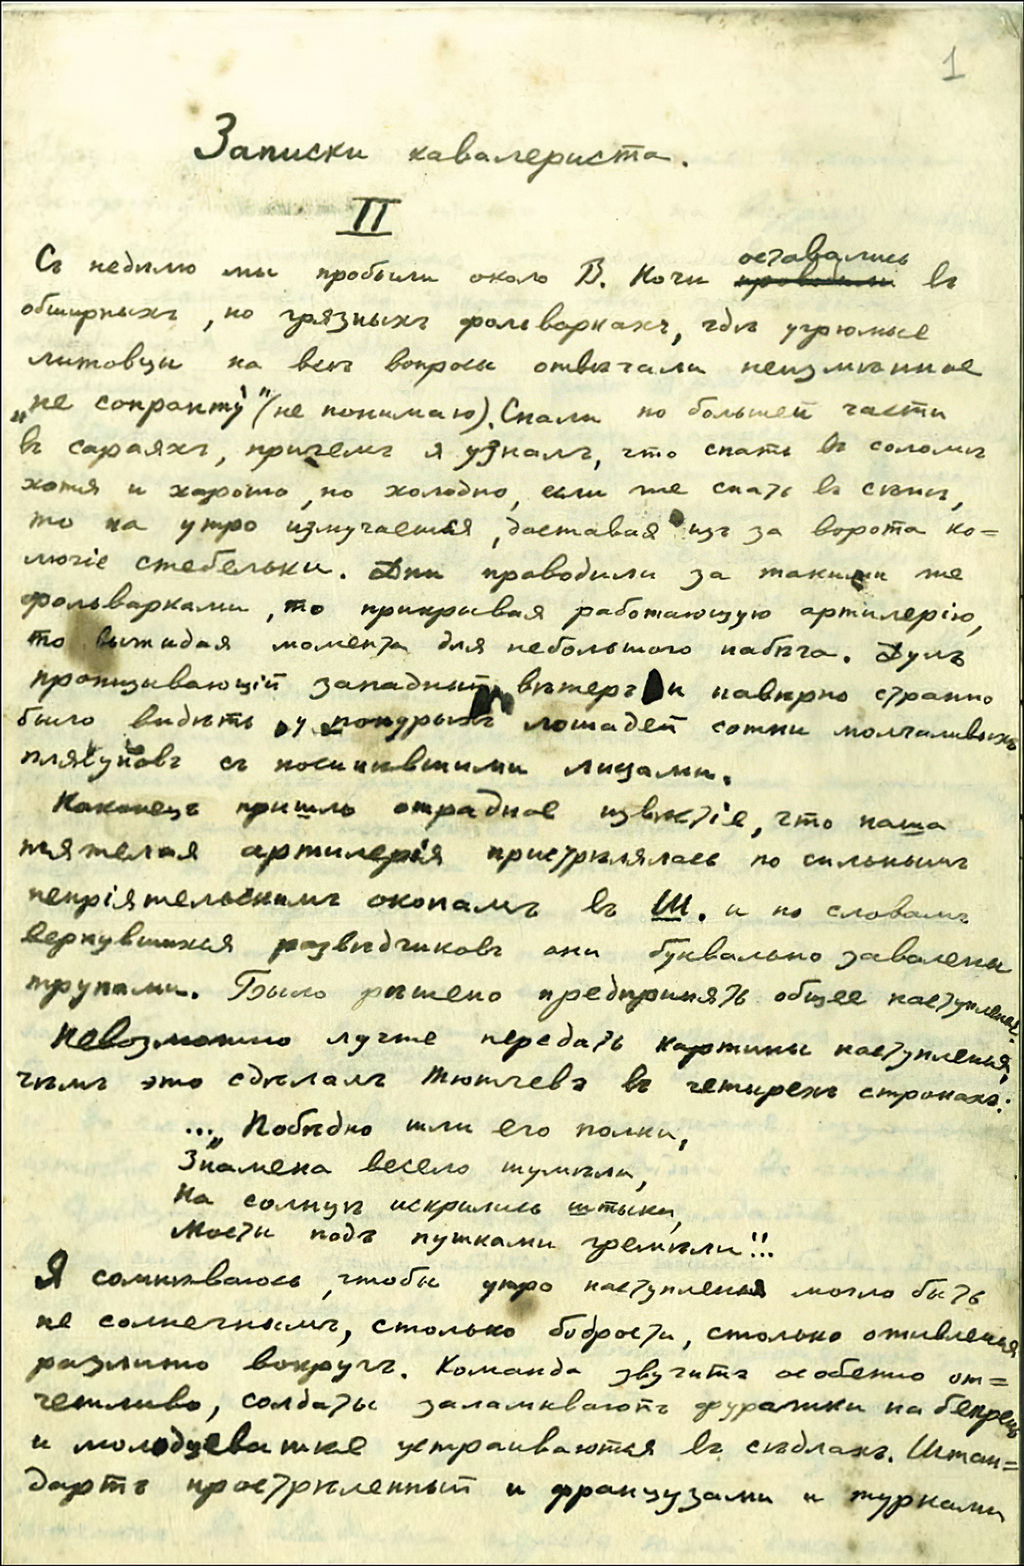 1
Записки кавалериста.
II
Съ недѣлю мы пробыли около В. Ночи оставались въ
обширныхъ, но грязныхъ фольваркахъ, гдѣ угрюмые
литовцы на всѣ вопросы отвѣчали неизмѣнное
„не сопрантý“ (не понимаю). Спали по большей части
въ сараяхъ, причемъ я узналъ, что спать въ соломѣ
хотя и хорошо, но холодно, если же спать въ сѣнѣ,
то на утро измучаешься, доставая изъ за ворота ко=
лючіе стебельки. Дни проводили за такими же
фольварками, то прикрывая работающую артилерію,
то выжидая момента для небольшого набѣга. Дулъ
пронизывающій западный вѣтеръ и навѣрно странно
было видѣть у понурыхъ лошадей сотни молчаливыхъ
плясуновъ съ посинѣвшими лицами.
Наконецъ пришло отрадное извѣстіе, что наша
тяжелая артилерія пристрѣлялась по сильнымъ
непріятельскимъ окопамъ въ Ш. и по словамъ
вернувшихся развѣдчиковъ они буквально завалены
трупами. Было рѣшено предпринять общее наступленье.
Невозможно лучше передать картины наступленья,
чѣмъ это сдѣлалъ Тютчевъ въ четырехъ строкахъ:
...„Побѣдно шли его полки,
Знамена весело шумѣли,
На солнцѣ искрились штыки,
Мосты подъ пушками гремѣли“!..
Я сомнѣваюсь, чтобы утро наступленья могло быть
не солнечнымъ, столько бодрости, столько оживленья
разлито вокругъ. Команда звучитъ особенно от=
четливо, солдаты заламываютъ фуражки на бекрень
и молодцеватѣе устраиваются въ сѣдлахъ. Штан=
дартъ прострѣленный и французами и турками